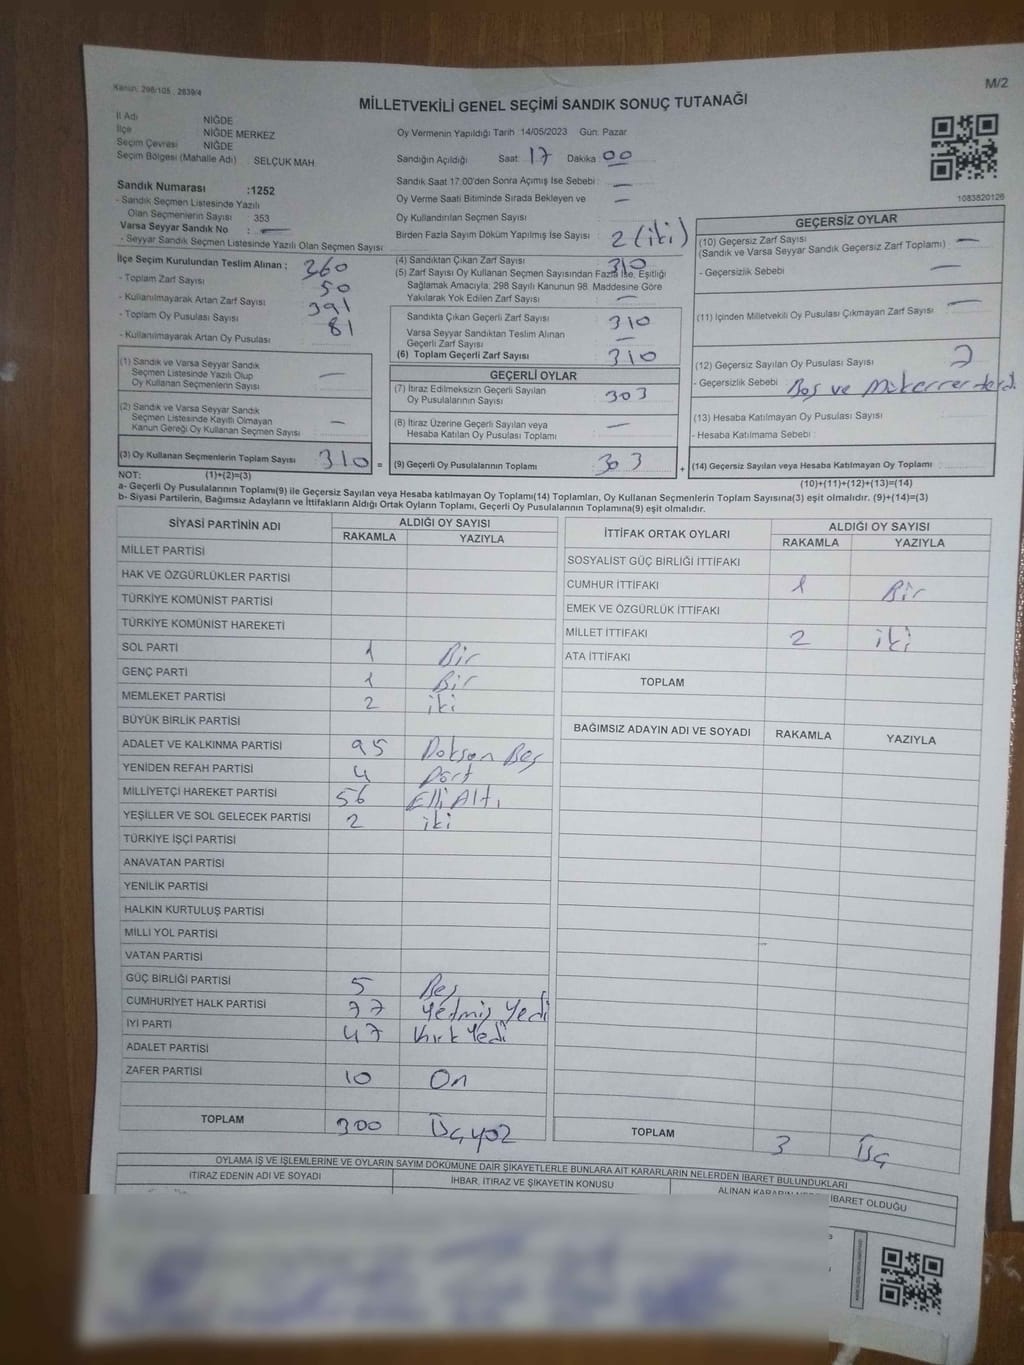 Kanun: 298/105 , 2839/4
M/2
MİLLETVEKİLİ GENEL SEÇİMİ SANDIK SONUÇ TUTANAĞI
İl Adı NİĞDE
İlçe NİĞDE MERKEZ
Seçim Çevresi NİĞDE
Seçim Bölgesi (Mahalle Adı) SELÇUK MAH
Oy Vermenin Yapıldığı Tarih 14/05/2023 Gün: Pazar
Sandığın Açıldığı Saat: 17 Dakika: 00
Sandık Saat 17:00'den Sonra Açılmış İse Sebebi : —
Oy Verme Saati Bitiminde Sırada Bekleyen ve —
Oy Kullandırılan Seçmen Sayısı
Birden Fazla Sayım Döküm Yapılmış İse Sayısı : 2 (iki)
1083820126
Sandık Numarası :1252
- Sandık Seçmen Listesinde Yazılı
Olan Seçmenlerin Sayısı 353
Varsa Seyyar Sandık No : —
- Seyyar Sandık Seçmen Listesinde Yazılı Olan Seçmen Sayısı
İlçe Seçim Kurulundan Teslim Alınan :
- Toplam Zarf Sayısı 360
- Kullanılmayarak Artan Zarf Sayısı 50
- Toplam Oy Pusulası Sayısı 391
- Kullanılmayarak Artan Oy Pusulası 81
(1) Sandık ve Varsa Seyyar Sandık
Seçmen Listesinde Yazılı Olup
Oy Kullanan Seçmenlerin Sayısı —
(2) Sandık ve Varsa Seyyar Sandık
Seçmen Listesinde Kayıtlı Olmayan
Kanun Gereği Oy Kullanan Seçmen Sayısı —
(3) Oy Kullanan Seçmenlerin Toplam Sayısı 310 =
(4) Sandıktan Çıkan Zarf Sayısı 310
(5) Zarf Sayısı Oy Kullanan Seçmen Sayısından Fazla İse, Eşitliği
Sağlamak Amacıyla; 298 Sayılı Kanunun 98. Maddesine Göre
Yakılarak Yok Edilen Zarf Sayısı —
Sandıkta Çıkan Geçerli Zarf Sayısı 310
Varsa Seyyar Sandıktan Teslim Alınan
Geçerli Zarf Sayısı —
(6) Toplam Geçerli Zarf Sayısı 310
GEÇERLİ OYLAR
(7) İtiraz Edilmeksizin Geçerli Sayılan
Oy Pusulalarının Sayısı 303
(8) İtiraz Üzerine Geçerli Sayılan veya
Hesaba Katılan Oy Pusulası Toplamı —
(9) Geçerli Oy Pusulalarının Toplamı 303 +
GEÇERSİZ OYLAR
(10) Geçersiz Zarf Sayısı
(Sandık ve Varsa Seyyar Sandık Geçersiz Zarf Toplamı) —
- Geçersizlik Sebebi —
(11) İçinden Milletvekili Oy Pusulası Çıkmayan Zarf Sayısı —
(12) Geçersiz Sayılan Oy Pusulası Sayısı
- Geçersizlik Sebebi Boş ve
(13) Hesaba Katılmayan Oy Pusulası Sayısı
- Hesaba Katılmama Sebebi
(14) Geçersiz Sayılan veya Hesaba Katılmayan Oy Toplamı
NOT: (1)+(2)=(3)
(10)+(11)+(12)+(13)=(14)
a- Geçerli Oy Pusulalarının Toplamı(9) ile Geçersiz Sayılan veya Hesaba katılmayan Oy Toplamı(14) Toplamları, Oy Kullanan Seçmenlerin Toplam Sayısına(3) eşit olmalıdır. (9)+(14)=(3)
b- Siyasi Partilerin, Bağımsız Adayların ve İttifakların Aldığı Ortak Oyların Toplamı, Geçerli Oy Pusulalarının Toplamına(9) eşit olmalıdır.
SİYASİ PARTİNİN ADI ALDIĞI OY SAYISI
RAKAMLA YAZIYLA
MİLLET PARTİSİ
HAK VE ÖZGÜRLÜKLER PARTİSİ
TÜRKİYE KOMÜNİST PARTİSİ
TÜRKİYE KOMÜNİST HAREKETİ
SOL PARTİ 1 Bir
GENÇ PARTİ 1 Bir
MEMLEKET PARTİSİ 2 iki
BÜYÜK BİRLİK PARTİSİ
ADALET VE KALKINMA PARTİSİ 95 Doksan Beş
YENİDEN REFAH PARTİSİ 4 Dört
MİLLİYETÇİ HAREKET PARTİSİ 56 Elli Altı
YEŞİLLER VE SOL GELECEK PARTİSİ 2 iki
TÜRKİYE İŞÇİ PARTİSİ
ANAVATAN PARTİSİ
YENİLİK PARTİSİ
HALKIN KURTULUŞ PARTİSİ
MİLLİ YOL PARTİSİ
VATAN PARTİSİ
GÜÇ BİRLİĞİ PARTİSİ 5 Beş
CUMHURİYET HALK PARTİSİ 77 Yetmiş Yedi
İYİ PARTİ 47 Kırk Yedi
ADALET PARTİSİ
ZAFER PARTİSİ 10 On
TOPLAM 300 Üçyüz
İTTİFAK ORTAK OYLARI ALDIĞI OY SAYISI
RAKAMLA YAZIYLA
SOSYALİST GÜÇ BİRLİĞİ İTTİFAKI
CUMHUR İTTİFAKI 1 Bir
EMEK VE ÖZGÜRLÜK İTTİFAKI
MİLLET İTTİFAKI 2 iki
ATA İTTİFAKI
TOPLAM
BAĞIMSIZ ADAYIN ADI VE SOYADI RAKAMLA YAZIYLA
TOPLAM 3 Üç
OYLAMA İŞ VE İŞLEMLERİNE VE OYLARIN SAYIM DÖKÜMÜNE DAİR ŞİKAYETLERLE BUNLARA AİT KARARLARIN NELERDEN İBARET BULUNDUKLARI
İTİRAZ EDENİN ADI VE SOYADI
İHBAR, İTİRAZ VE ŞİKAYETİN KONUSU
ALINAN KARARIN İBARET OLDUĞU